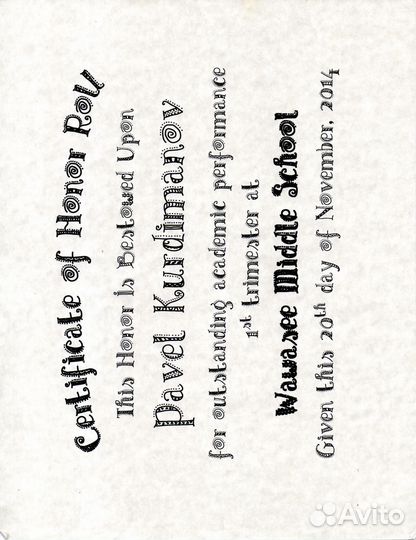 Certificate of Honor Roll
This Honor is Bestowed Upon
Pavel Kurdimanov
for outstanding academic performance
1st trimester at
Wawasee Middle School
Given this 20th day of November, 2014
Avito